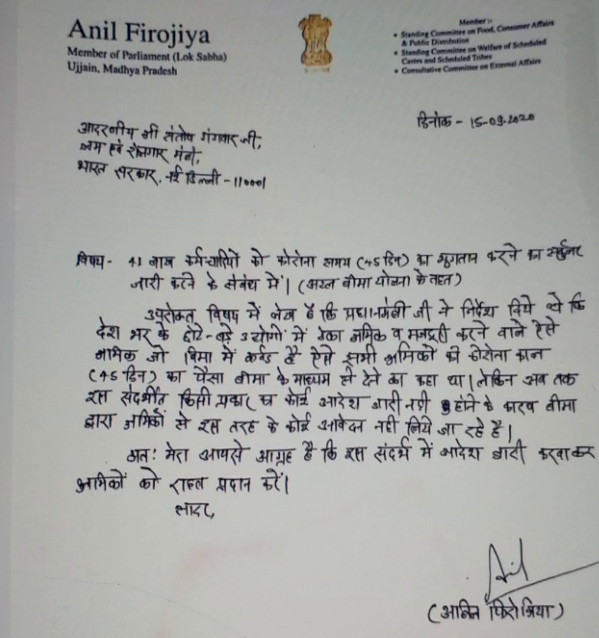 Anil Firojiya
Member of Parliament (Lok Sabha)
Ujjain, Madhya Pradesh
Member :-
• Standing Committee on Food, Consumer Affairs
& Public Distribution
• Standing Committee on Welfare of Scheduled
Castes and Scheduled Tribes
• Consultative Committee on External Affairs
दिनांक - 15-09-2020
आदरणीय श्री संतोष गंगवार जी,
श्रम एवं रोजगार मंत्री,
भारत सरकार, नई दिल्ली - 110001
विषय - 41 लाख कर्मचारियों को कोरोना समय (45 दिन) का भुगतान करने का सर्कुलर
जारी करने के संबंध में। (अटल बीमा योजना के तहत)
उपरोक्त विषय में लेख है कि प्रधानमंत्री जी ने निर्देश दिये थे कि
देश भर के छोटे-बड़े उद्योगों में ठेका श्रमिक व मजदूरी करने वाले ऐसे
श्रमिक जो बिमा में कवर्ड है ऐसे सभी श्रमिकों को कोरोना काल
(45 दिन) का पैसा बीमा के माध्यम से देने का कहा था। लेकिन अब तक
इस संदर्भीत किसी प्रकार का कोई आदेश जारी नही होने के कारण बीमा
द्वारा श्रमिकों से इस तरह के कोई आवेदन नही लिये जा रहे है।
अतः मेरा आपसे आग्रह है कि इस संदर्भ में आदेश जारी करवाकर
श्रमिकों को राहत प्रदान करें।
सादर,
Anil
(अनिल फिरोजिया)